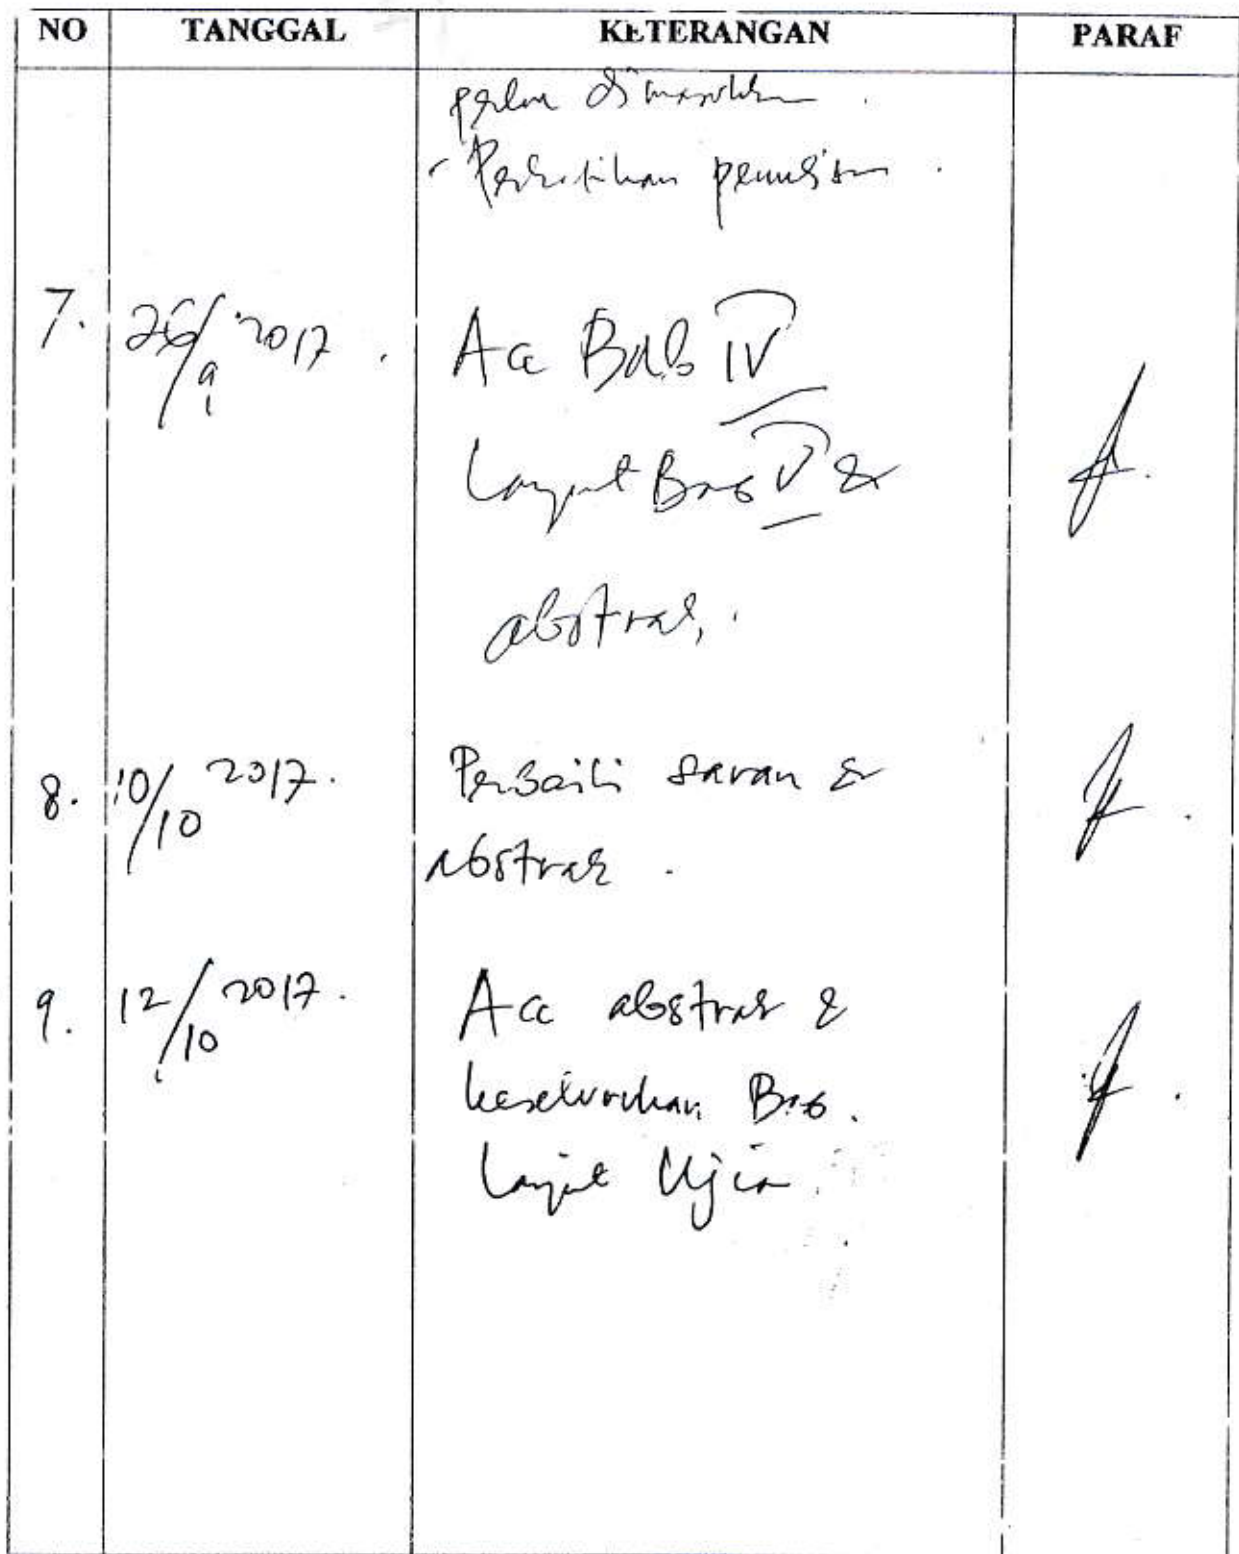 NO TANGGAL KETERANGAN PARAF
perlu dimasukkan.
- Perhatikan penulisan.
7. 26/9 2017. Acc Bab IV
Lanjut Bab V &
abstrak.
8. 10/10 2017. Perbaiki saran &
abstrak.
9. 12/10 2017. Acc abstrak &
keseluruhan Bab.
Lanjut Ujian.